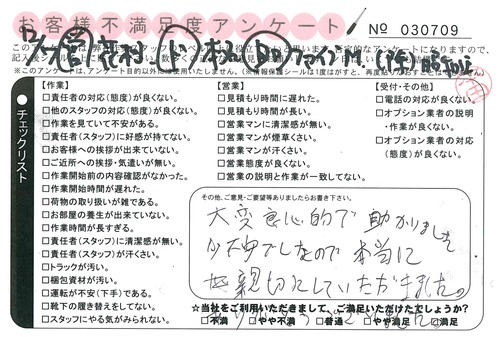 お客様不満足度アンケート
No 030709
※このアンケートは、アンケート目的以外には使用いたしません。
チェックリスト
【作業】
□責任者の対応(態度)が良くない。
□他のスタッフの対応(態度)が良くない。
□作業を見ていて不安がある。
□責任者(スタッフ)に好感が持てない。
□お客様への挨拶が出来ていない。
□ご近所への挨拶・気遣いが無い。
□作業開始前の内容確認がなかった。
□作業開始時間が遅れた。
□荷物の取り扱いが雑である。
□お部屋の養生が出来ていない。
□作業時間が長すぎる。
□責任者(スタッフ)に清潔感が無い。
□責任者(スタッフ)が汗くさい。
□トラックが汚い。
□梱包資材が汚い。
□運転が不安(下手)である。
□靴下の履き替えをしてない。
□スタッフにやる気がみられない。
【営業】
□見積もり時間に遅れた。
□見積もり時間が長い。
□営業マンに清潔感が無い。
□営業マンが煙草くさい。
□営業マンが汗くさい。
□営業態度が良くない。
□営業の説明と作業が一致してない。
【受付・その他】
□電話の対応が良くない。
□オプション業者の説明・作業が良くない。
□オプション業者の対応(態度)が良くない。
その他、ご意見・ご要望等ありましたらお書き下さい。
大変良心的で助かりました
本当に
親切にしていただきました。
☆当社をご利用いただきまして、ご満足いただけたでしょうか?
□不満 □やや不満 □普通 □やや満足 □満足